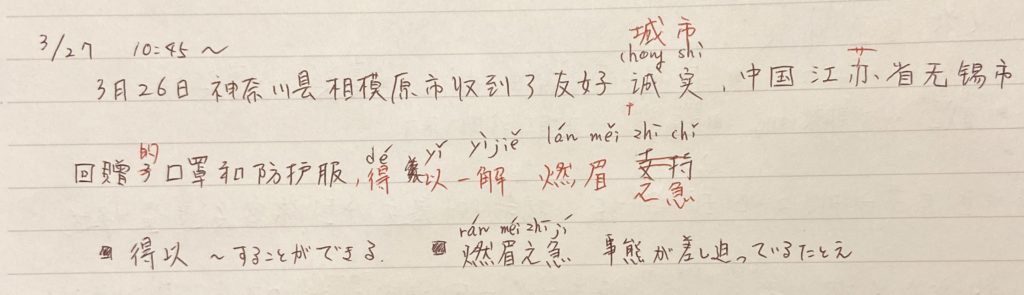 3/27 10:45〜
城市
chong shi
3月26日 神奈川県相模原市收到了友好诚实,中国江苏省无锡市
dé yǐ yìjiě lán měi zhī chí
的
回赠了口罩和防护服,得以一解 燃眉 支持
之急
rán méi zhī jí
得以 〜することができる. 燃眉之急 事態が差し迫っているたとえ